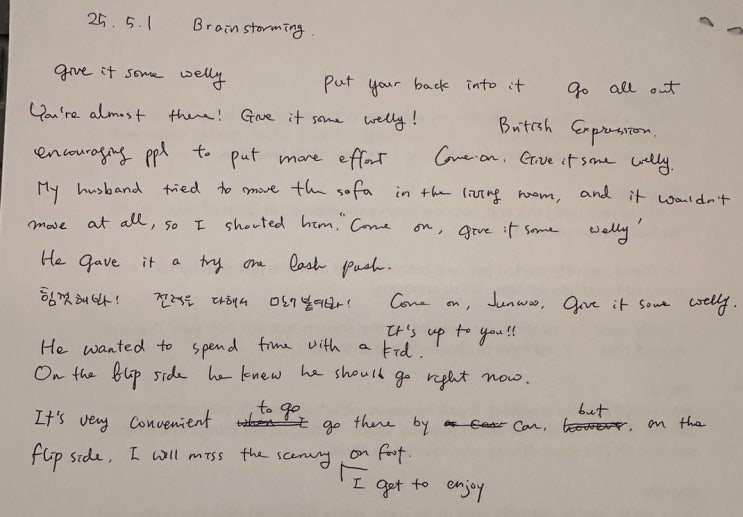 25. 5. 1 Brainstorming.
give it some welly put your back into it go all out
You're almost there! Give it some welly! British Expression.
encouraging ppl to put more effort Come on. Give it some welly.
My husband tried to move the sofa in the living room, and it wouldn't
move at all, so I shouted him. "Come on, give it some welly"
He gave it a try one lash push.
힘껏해봐! 전력을 다해서 밀어붙여봐! Come on, Junwoo, Give it some welly.
It's up to you!!
He wanted to spend time with a kid.
On the flip side he knew he should go right now.
It's very convenient to go go there by car, but, on the
flip side, I will miss the scenery on foot.
I get to enjoy